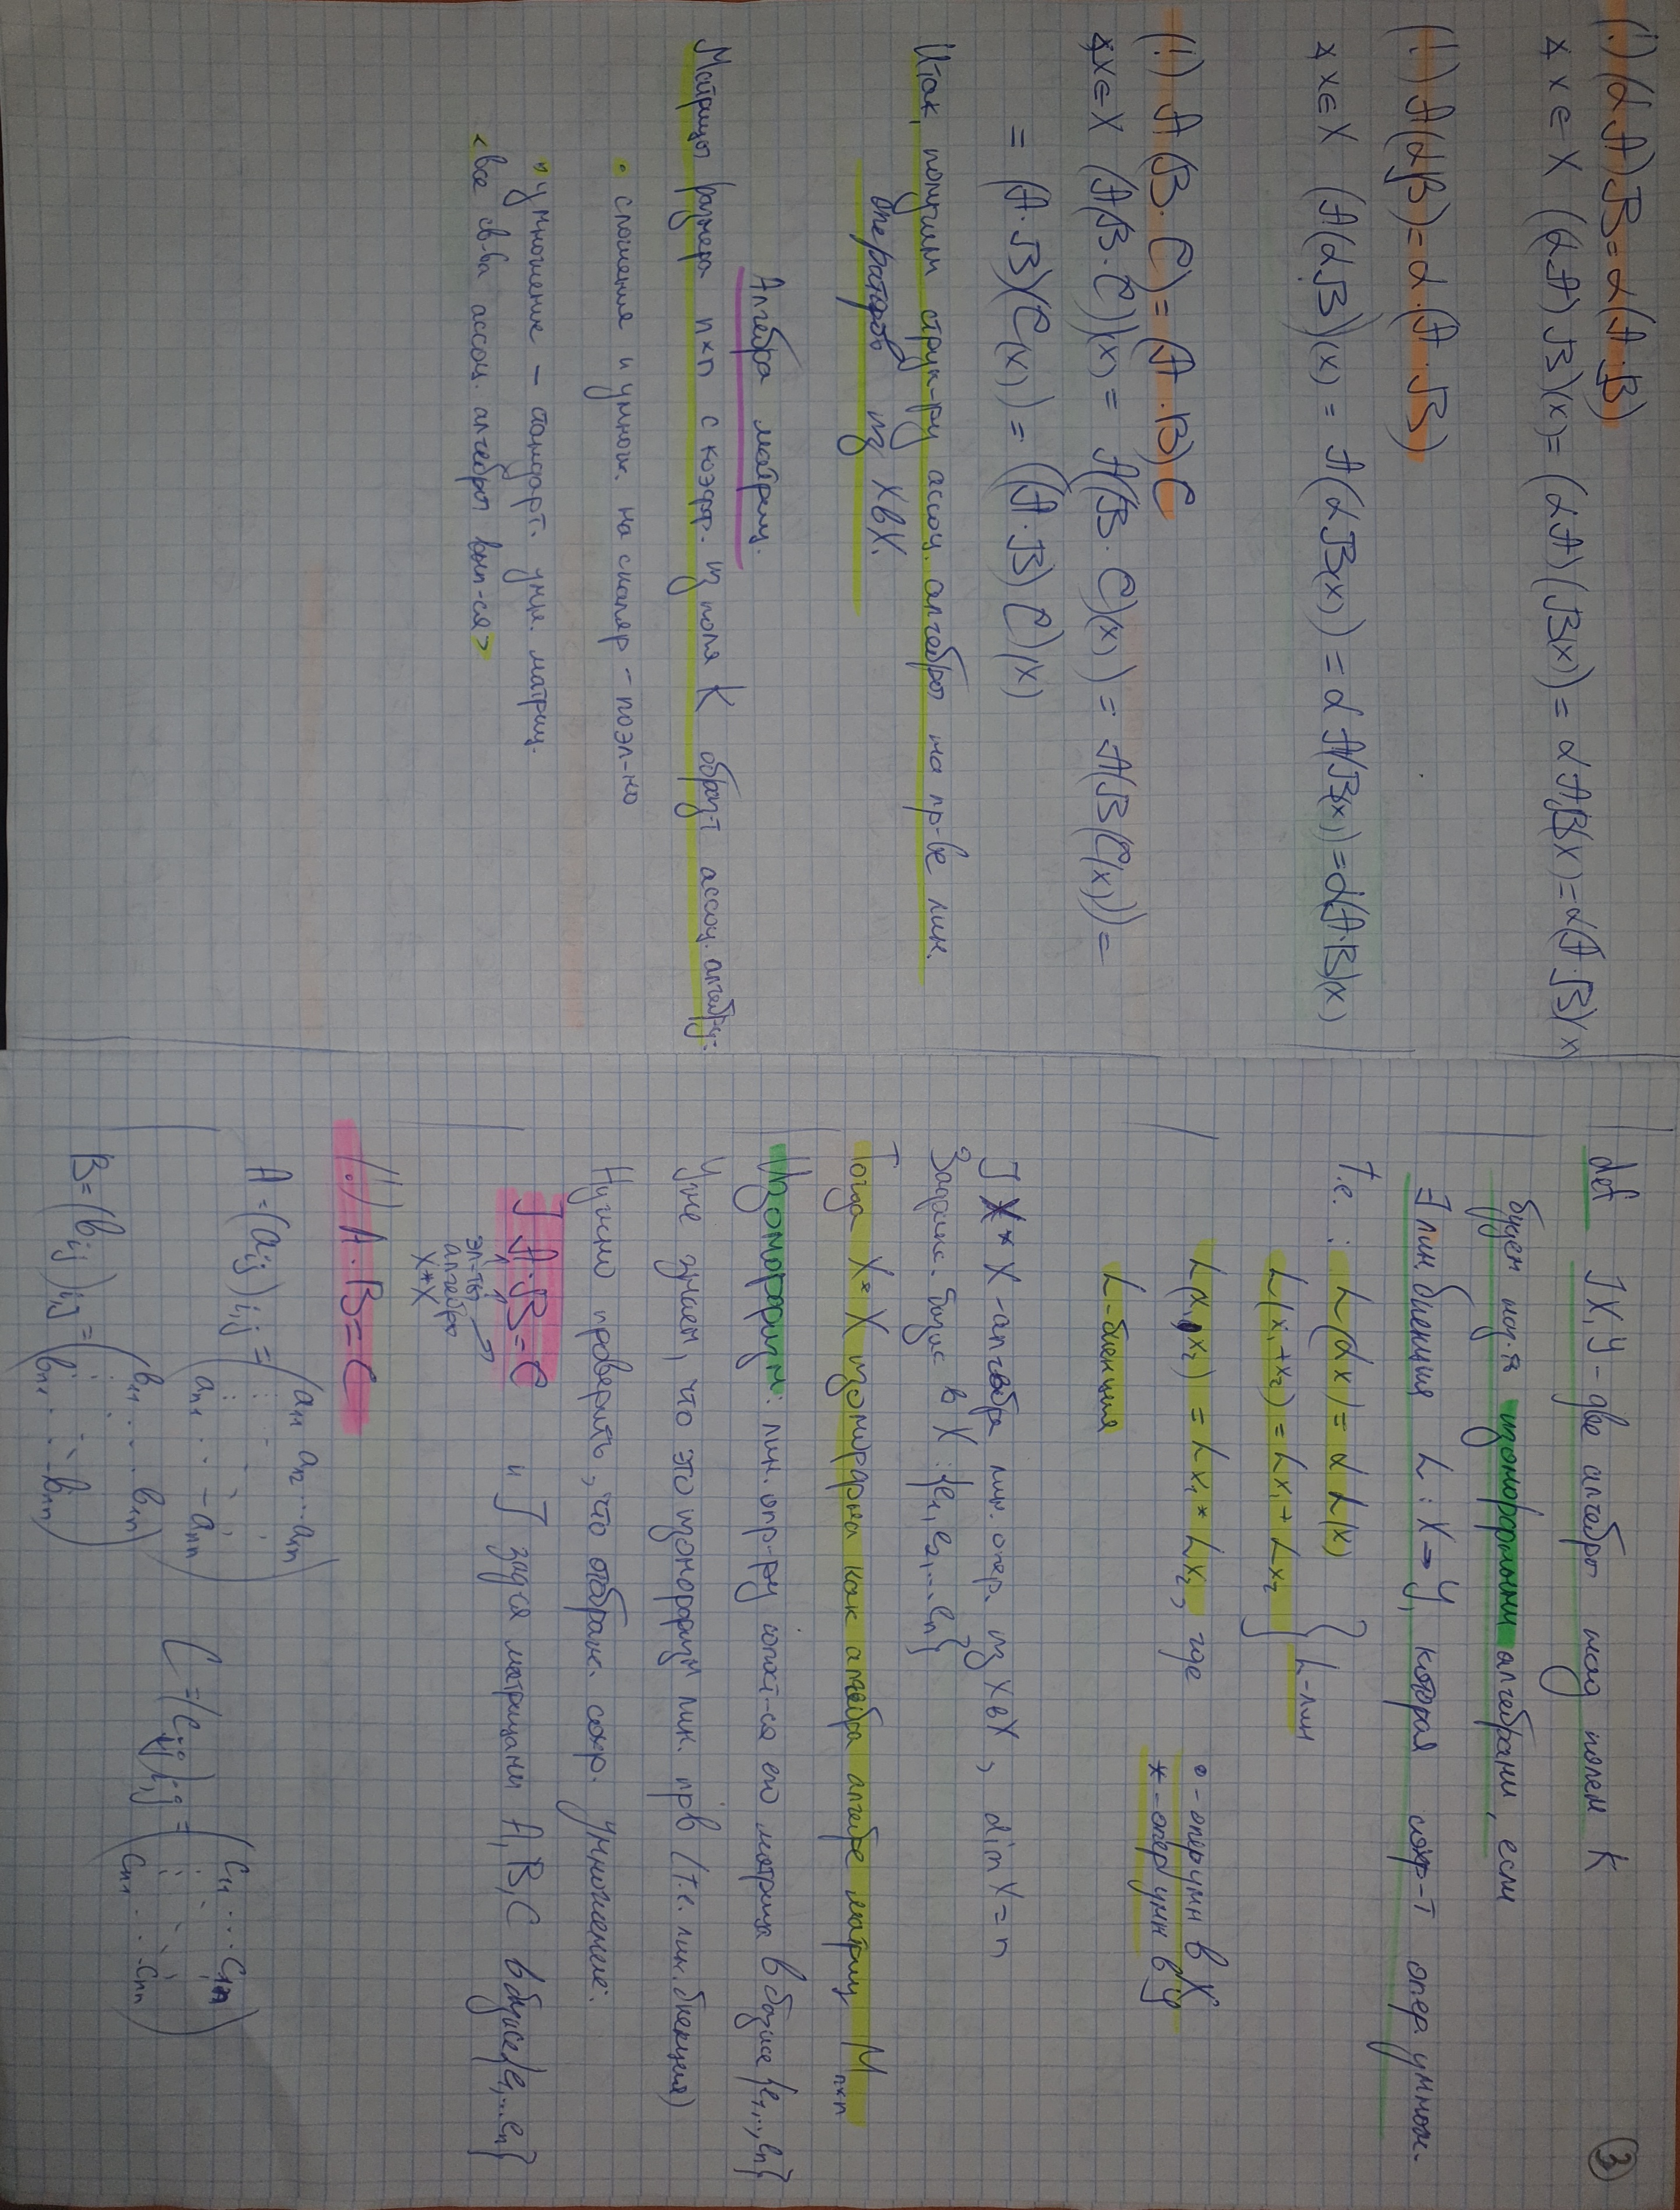 (!) (αA)B = α(A·B)
∢ x ∈ X (αA)B)(x) = (αA)(B(x)) = αA(B(x)) = α(A·B)(x
(!) A(αB) = α·(A·B)
∢ x ∈ X (A(αB))(x) = A(αB(x)) = αA(B(x)) = α(A·B)(x)
(!) A(B·C) = (A·B)C
∢ x ∈ X (A(B·C))(x) = A((B·C)(x)) = A(B(C(x))) =
= (A·B)(C(x)) = ((A·B)C)(x)
Итак, получим струк-ру ассоц. алгебры на пр-ве лин.
операторов из X в X.
Алгебра матриц.
Матрицы размера n×n с коэфф. из поля K образ-т ассоц. алгебру:
• сложение и умнож. на скаляр - поэл-но
• умножение - стандарт. умн. матриц.
<все св-ва ассоц. алгебры вып-ся>
③
def ] X, Y - две алгебры над полем K
будем наз-я изоморфными алгебрами, если
∃ лин. биекция L: X → Y, которая сохр-т опер. умнож.
т.е.: L(αx) = αL(x)
L(x₁+x₂) = Lx₁ + Lx₂ } L-лин
L(x₁•x₂) = Lx₁ * Lx₂, где
• - опер умн в X
* - опер умн в Y
L-биекция
] X*X - алгебра лин. опер. из X в X, dim X = n
Задаис. базис в X: {e₁, e₂, ... eₙ}
Тогда X*X изоморфна как алгебра алгебре матриц Mₙₓₙ
Изоморфизм: лин. опр-ру сопост-ся его матрица в базисе {e₁,..,eₙ}
Уже знаем, что это изоморфизм лин. пр-в (т.е. лин. биекция)
Нужно проверить, что отображ. сохр. умножение:
] A·B = C и ] зад-ся матрицами A, B, C в базисе {e₁, ... eₙ}
эл-ты
алгебры
X*X
(!) A·B = C
A = (aᵢⱼ)ᵢ,ⱼ = (a₁₁ a₁₂ ... a₁ₙ
aₙ₁ ... aₙₙ)
B = (bᵢⱼ)ᵢ,ⱼ = (b₁₁ ... b₁ₙ
bₙ₁ ... bₙₙ)
C = (cᵢⱼ)ᵢ,ⱼ = (c₁₁ ... c₁ₙ
cₙ₁ ... cₙₙ)